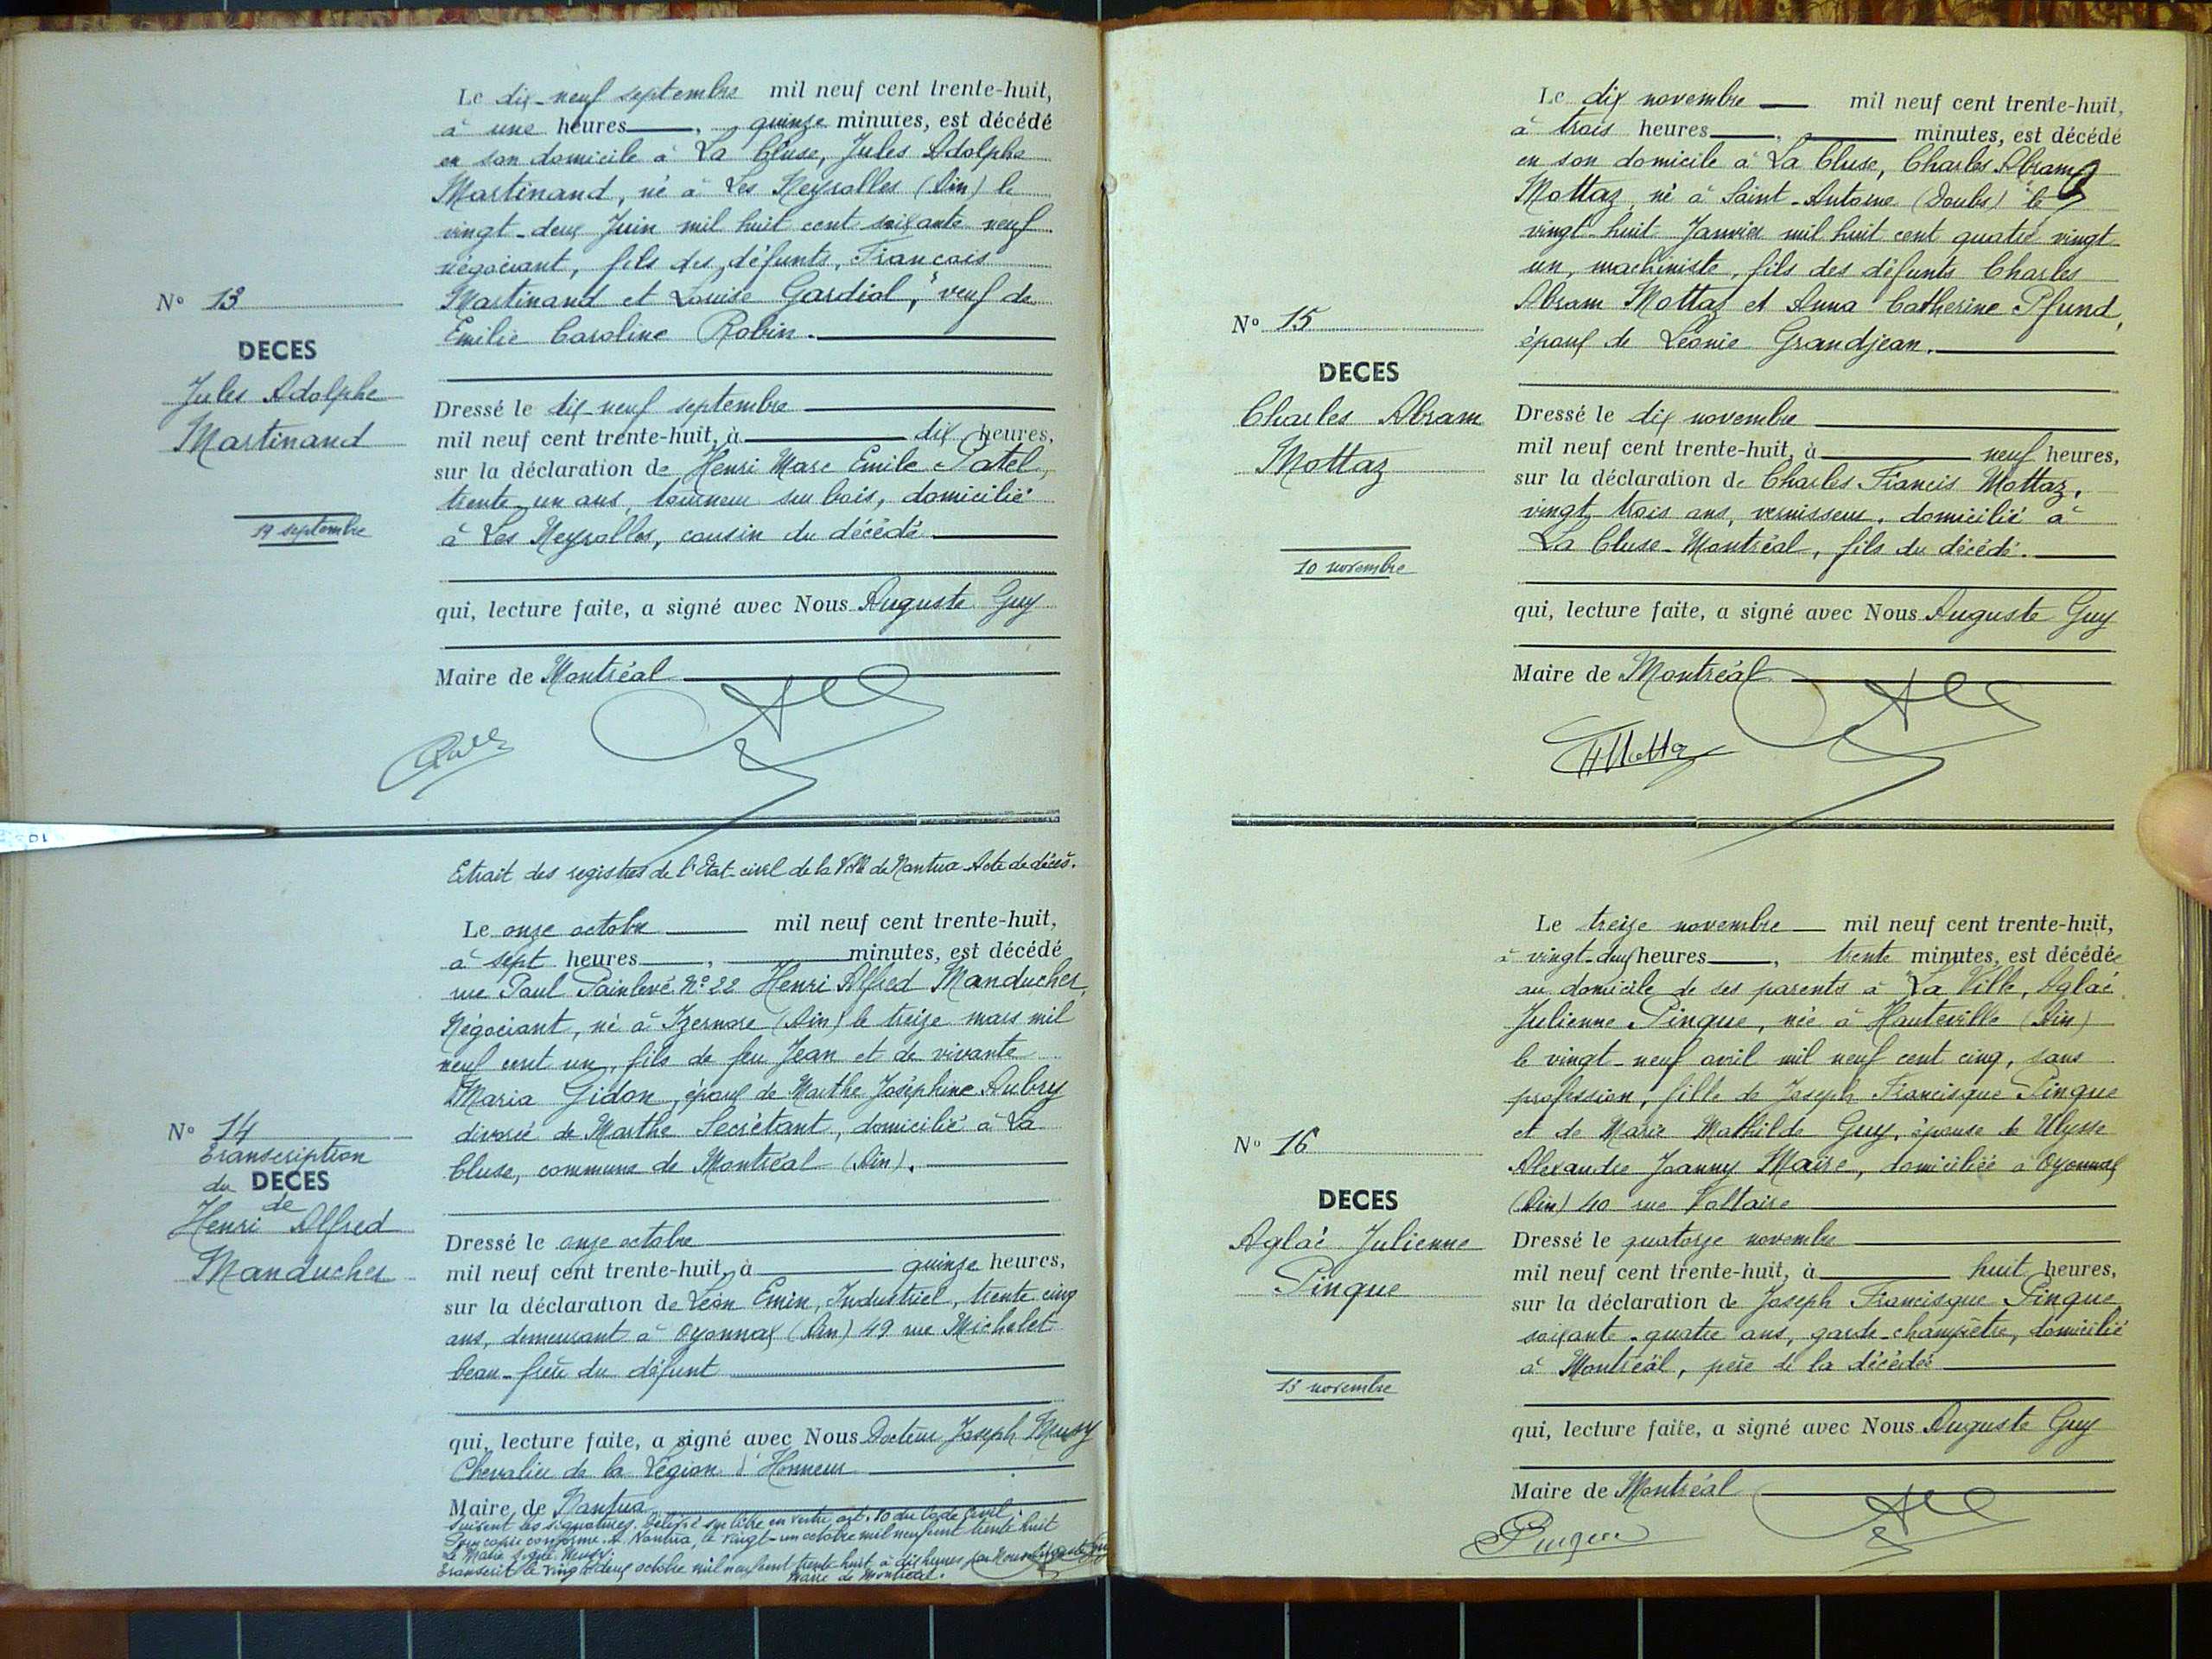 Le dix-neuf septembre mil neuf cent trente-huit,
à une heures, quinze minutes, est décédé
en son domicile à La Cluse, Jules Adolphe
Martinand, né à Les Neyrolles (Ain) le
vingt-deux Juin mil huit cent soixante neuf
négociant, fils des défunts, Francois
Martinand et Louise Gardiol, veuf de
Emilie Caroline Robin.
N° 13
DECES
Jules Adolphe
Martinand
19 septembre
Dressé le dix neuf septembre
mil neuf cent trente-huit, à dix heures,
sur la déclaration de Henri Marc Emile Patel,
trente-un ans, tourneur sur bois, domicilié
à Les Neyrolles, cousin du décédé
qui, lecture faite, a signé avec Nous Auguste Guy
Maire de Montréal
Extrait des registres de l'Etat-civil de la Ville de Nantua Acte de décès.
Le onze octobre mil neuf cent trente-huit,
à sept heures, minutes, est décédé
rue Paul Painlevé N° 22 Henri Alfred Manducher,
Négociant, né à Izernore (Ain) le treize mars mil
neuf cent un, fils de feu Jean et de vivante
Maria Gidon, époux de Marthe Joséphine Aubry
divorcé de Marthe Secrétant, domicilié à La
Cluse, commune de Montréal (Ain).
N° 14
Transcription
du DECES
de
Henri Alfred
Manducher
Dressé le onze octobre
mil neuf cent trente-huit, à quinze heures,
sur la déclaration de Léon Emin, Industriel, trente cinq
ans, demeurant à Oyonnax (Ain) 49 rue Michelet
beau-frère du défunt
qui, lecture faite, a signé avec Nous Docteur Joseph Mussy
Chevalier de la Légion d'Honneur
Maire de Nantua
Suivent les signatures. Délivré sur libre en vertu art. 10 du Code Civil.
Pour copie conforme. A Nantua, le vingt-un octobre mil neuf cent trente huit
Le Maire signé: Mussy.
Transcrit le vingt deux octobre mil neuf cent trente huit, à dix heures par Nous Auguste Guy
Maire de Montréal.
Le dix novembre mil neuf cent trente-huit,
à trois heures, minutes, est décédé
en son domicile à La Cluse, Charles Abram
Mottaz, né à Saint-Antoine (Doubs) le
vingt-huit Janvier mil huit cent quatre vingt
un, machiniste, fils des défunts Charles
Abram Mottaz et Anna Catherine Pfund,
époux de Léonie Grandjean.
N° 15
DECES
Charles Abram
Mottaz
10 novembre
Dressé le dix novembre
mil neuf cent trente-huit, à neuf heures,
sur la déclaration de Charles Francis Mottaz,
vingt trois ans, vernisseur, domicilié à
La Cluse-Montréal, fils du décédé.
qui, lecture faite, a signé avec Nous Auguste Guy
Maire de Montréal
Le treize novembre mil neuf cent trente-huit,
à vingt-deux heures, trente minutes, est décédée
au domicile de ses parents à La Ville, Aglaé
Julienne Pingue, née à Hauteville (Ain)
le vingt-neuf avril mil neuf cent cinq, sans
profession, fille de Joseph Francisque Pingue
et de Marie Mathilde Guy, épouse de Ulysse
Alexandre Joanny Maire, domiciliée à Oyonnax
(Ain) 40 rue Voltaire
N° 16
DECES
Aglaé Julienne
Pingue
13 novembre
Dressé le quatorze novembre
mil neuf cent trente-huit, à huit heures,
sur la déclaration de Joseph Francisque Pingue
soixante-quatre ans, garde-champêtre, domicilié
à Montréal, père de la décédée
qui, lecture faite, a signé avec Nous Auguste Guy
Maire de Montréal
Pingue